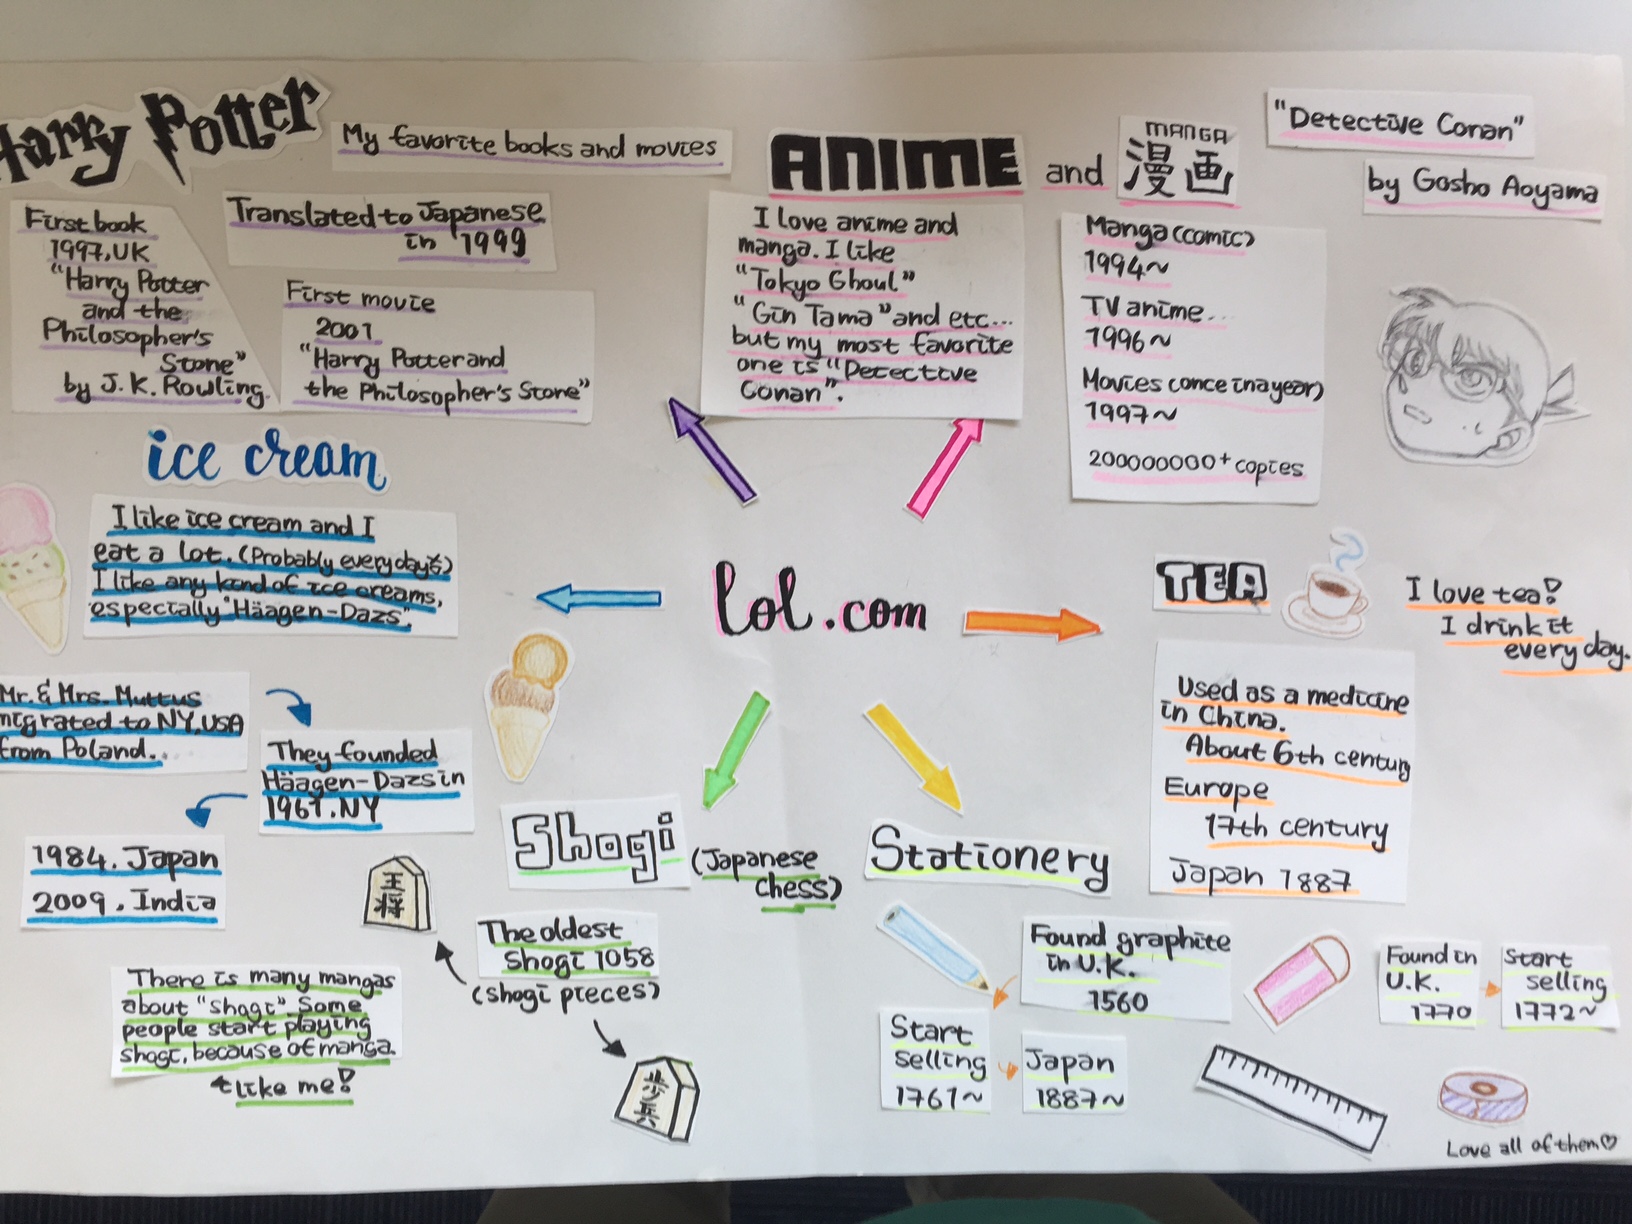 Harry Potter
My favorite books and movies
First book
1997, UK
"Harry Potter
and the
Philosopher's
Stone"
by J.K. Rowling.
Translated to Japanese
in 1999
First movie
2001
"Harry Potter and
the Philosopher's Stone"
ANIME and
MANGA
漫画
I love anime and
manga. I like
"Tokyo Ghoul"
"Gin Tama" and etc...
but my most favorite
one is "Detective
Conan".
"Detective Conan"
by Gosho Aoyama
Manga (comic)
1994~
TV anime...
1996~
Movies (once in a year)
1997~
200000000+ copies
ice cream
I like ice cream and I
eat a lot. (Probably every day
I like any kind of ice creams,
especially "Häagen-Dazs".
Mr. & Mrs. Muttus
migrated to NY, USA
from Poland...
They founded
Häagen-Dazs in
1961. NY
1984. Japan
2009. India
lol.com
TEA
I love tea!
I drink it
every day.
Used as a medicine
in China.
About 6th century
Europe
17th century
Japan 1887
Shogi
(Japanese
chess)
The oldest
Shogi 1058
(shogi pieces)
王将
歩兵
There is many mangas
about "Shogi". Some
people start playing
shogi, because of manga.
like me!
Stationery
Found graphite
in U.K.
1560
Start
selling
1761~
Japan
1887~
Found in
U.K.
1770
Start
selling
1772~
Love all of them♡